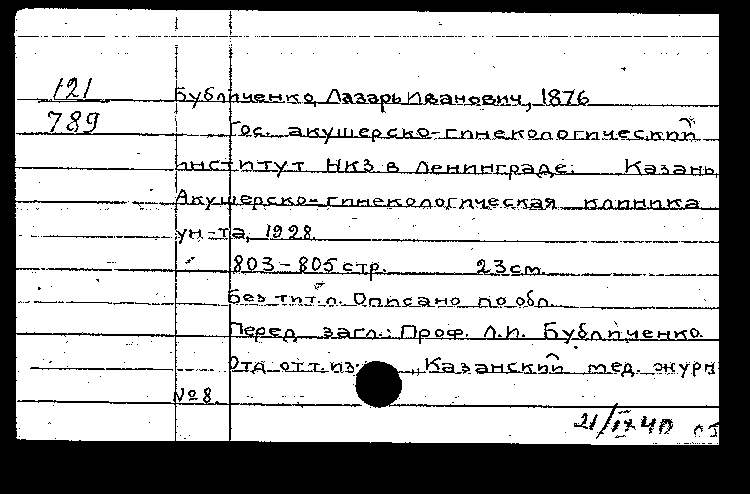 121
789
Бубличенко, Лазарь Иванович, 1876
Гос. акушерско-гинекологический
институт НКЗ в Ленинграде. Казань
Акушерско-гинекологическая клиника
ун-та, 1928.
803-805 стр. 23 см.
Без тит. л. Описано по обл.
Перед загл.: Проф. Л.И. Бубличенко
Отд. отт. из „Казанский мед. журн
№ 8.
21/IX 40